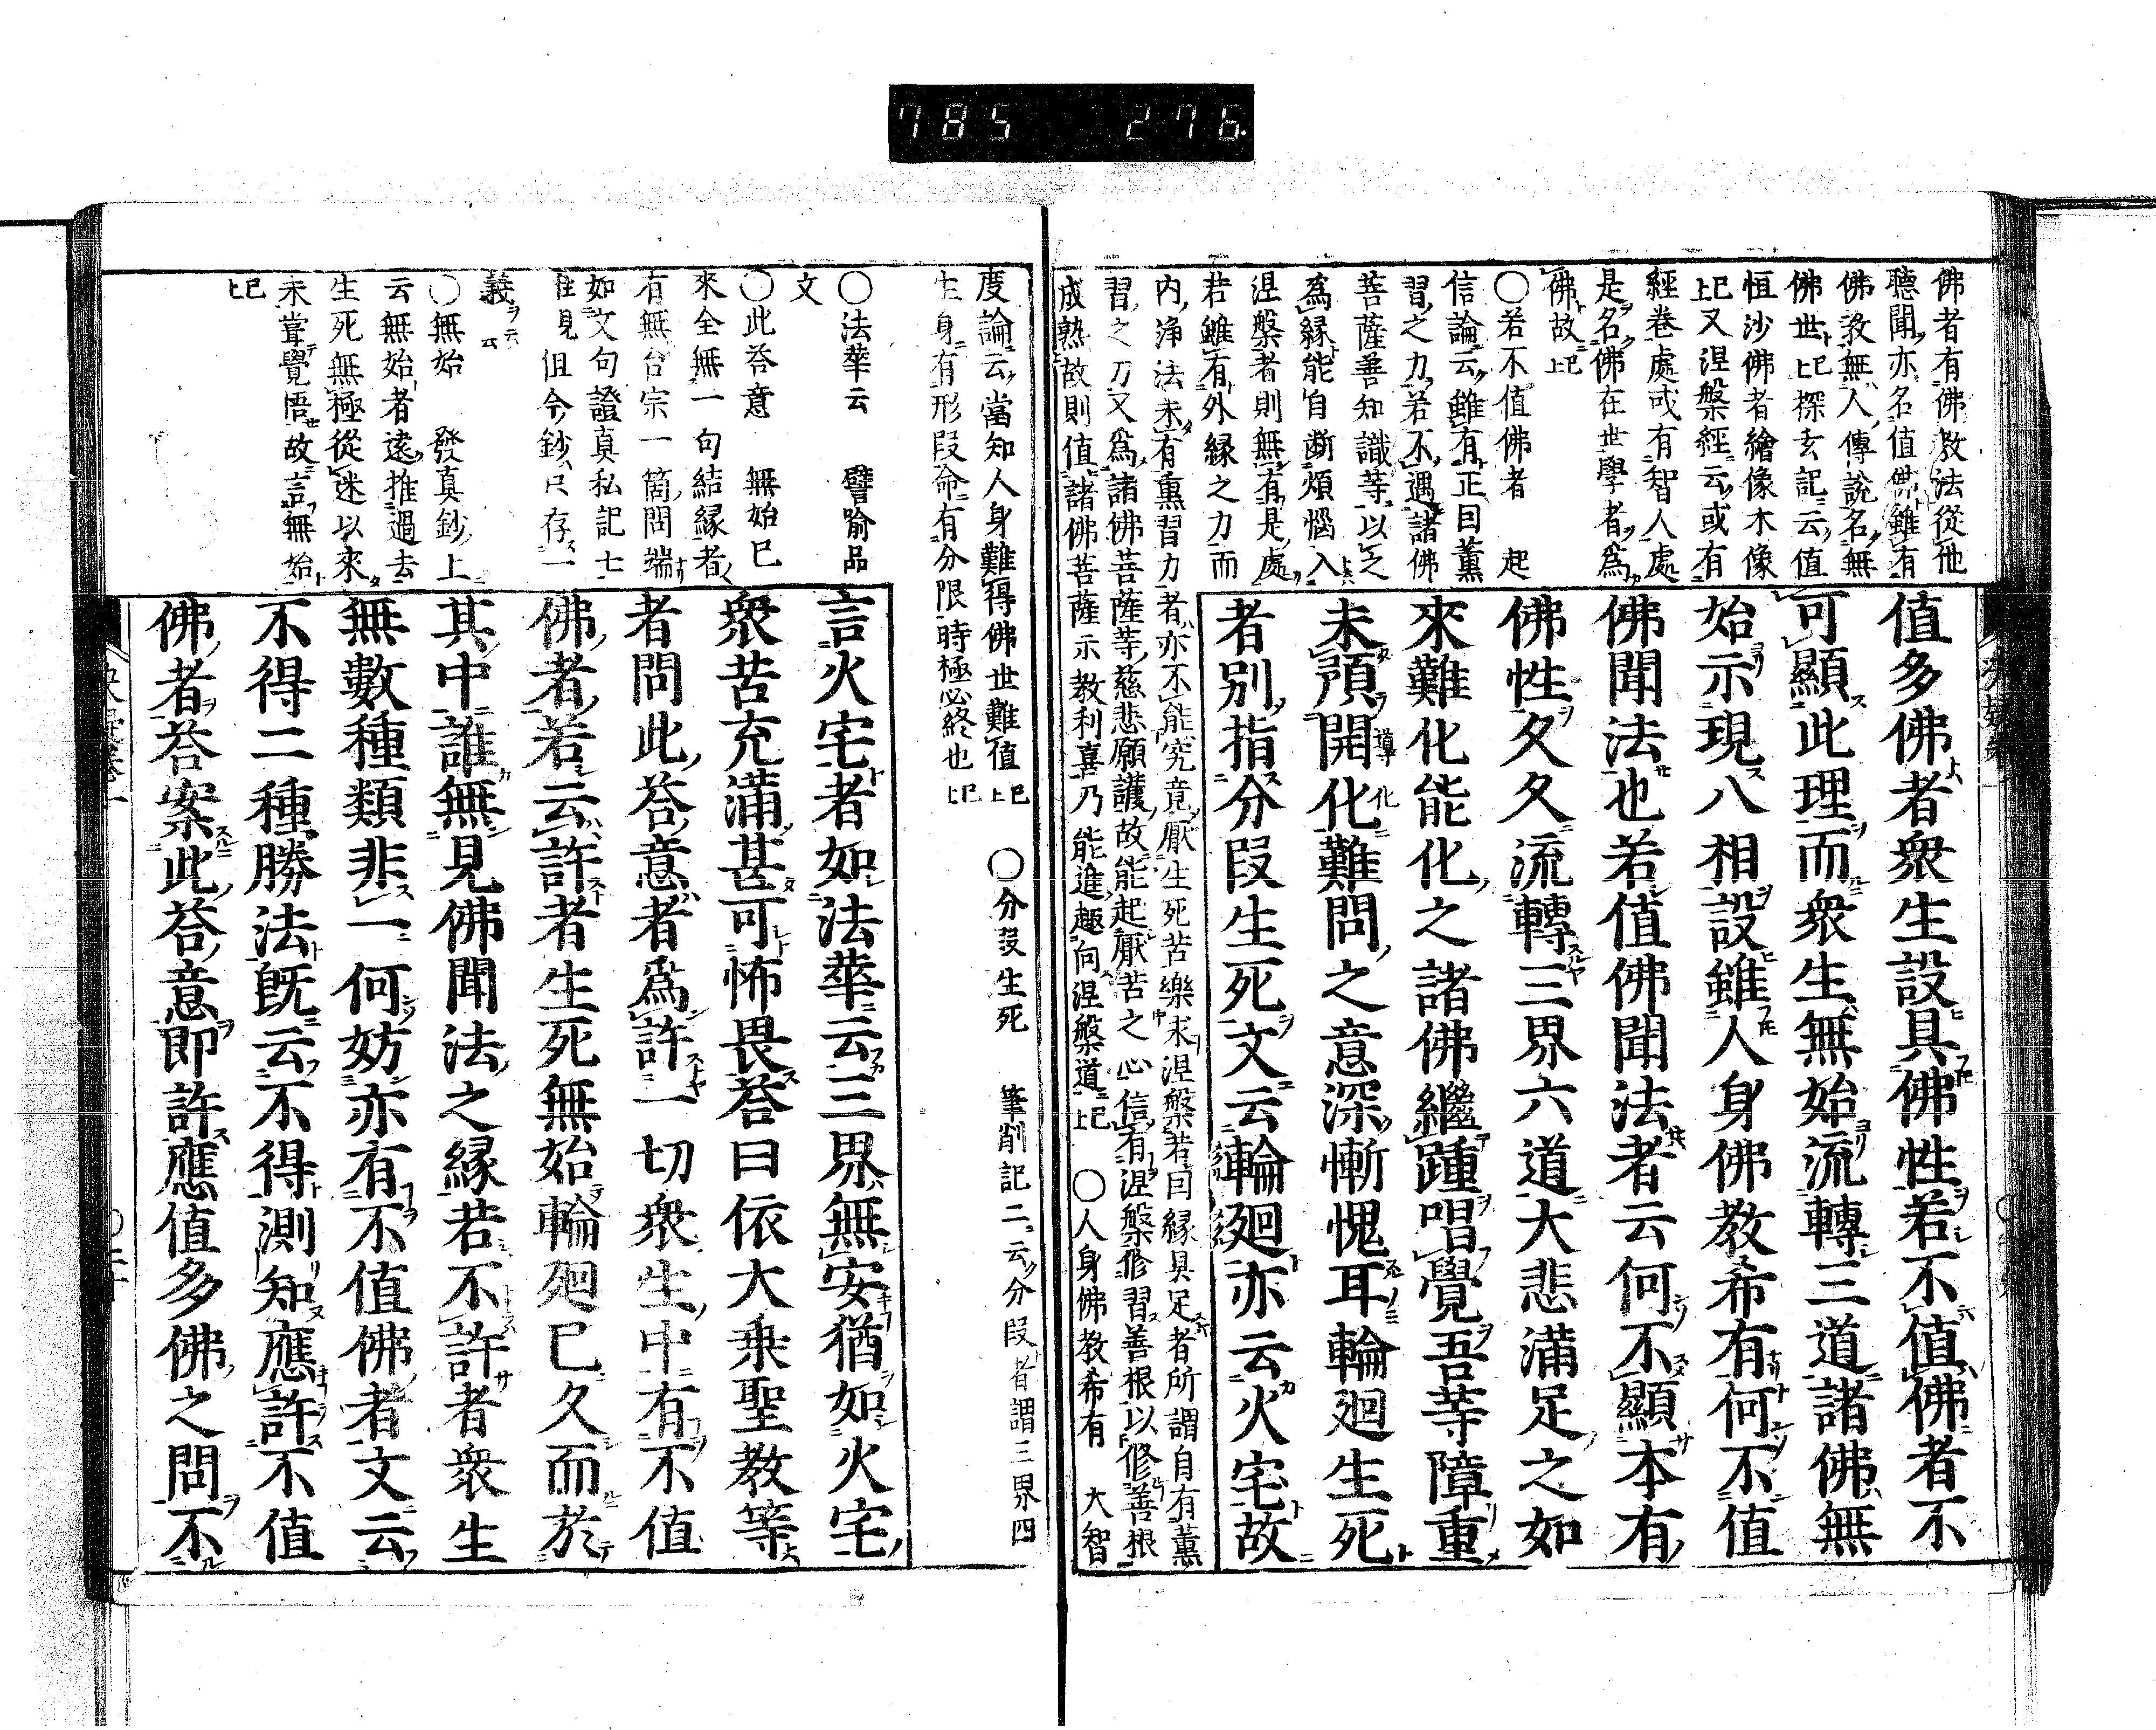 785 276
佛者有佛教法從他
聽聞亦名值佛雖有
佛教無人傳說名無
佛世已上探玄記云值
恒沙佛者繪像木像
已上又涅槃經云或有
經卷處或有智人處
是名佛在世學者爲
佛故已上
〇若不值佛者 起
信論云雖有正因薰
習之力若不遇諸佛
菩薩善知識等以之
爲緣能自斷煩惱入
涅槃者則無有是處
若雖有外緣之力而
内淨法未有熏習力者亦不能究竟厭生死苦樂求涅槃若因緣具足者所謂自有薰
習之力又爲諸佛菩薩等慈悲願護故能起厭苦之心信有涅槃修習善根以修善根
成熟故則值諸佛菩薩示教利喜乃能進趣向涅槃道已上 〇人身佛教希有 大智
值多佛者衆生設具佛性若不值佛者不
可顯此理而衆生無始流轉三道諸佛無
始示現八相設雖人身佛教希有何不值
佛聞法也若值佛聞法者云何不顯本有
佛性久久流轉三界六道大悲滿足之如
來難化能化之諸佛繼踵唱覺吾等障重
未預開化難問之意深慚愧耳輪廻生死
者別指分段生死文云輪廻亦云火宅故
度論云當知人身難得佛世難值已上 〇分段生死 筆削記二云分段者謂三界四
生身有形段命有分限時極必終也已上
〇法華云 譬喻品
文
〇此答意 無始已
來全無一句結緣者
有無台宗一箇問端
如文句證眞私記七
往見但今鈔只存一
義云云
〇無始 發真鈔上
云無始者遠推過去
生死無極從迷以來
未嘗覺悟故言無始
已上
言火宅者如法華云三界無安猶如火宅
衆苦充滿甚可怖畏答曰依大乘聖教等
者問此答意者爲許一切衆生中有不值
佛者若云許者生死無始輪廻已久而於
其中誰無見佛聞法之緣若不許者衆生
無數種類非一何妨亦有不值佛者文云
不得二種勝法既云不得測知應許不值
佛者答案此答意即許應值多佛之問不